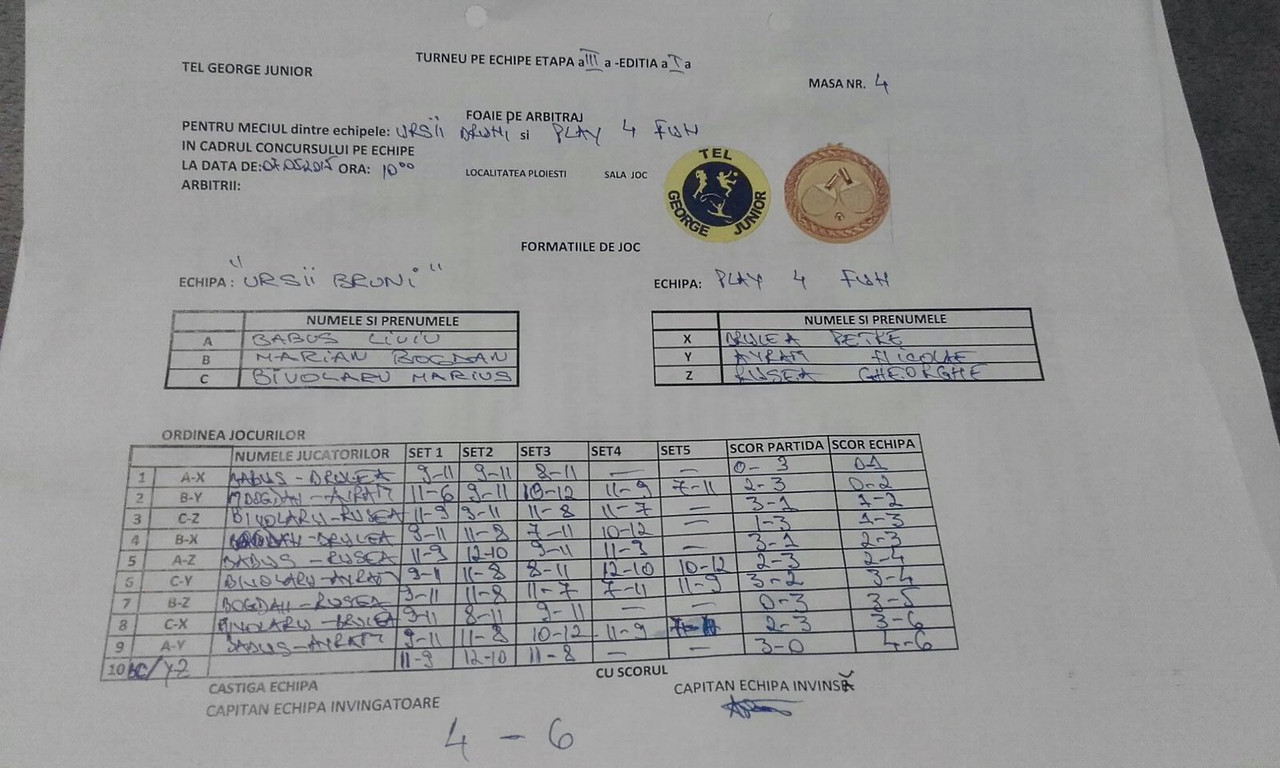 TURNEU PE ECHIPE ETAPA a III a -EDITIA a I a
TEL GEORGE JUNIOR
MASA NR. 4
FOAIE DE ARBITRAJ
PENTRU MECIUL dintre echipele: URSII BRUNI si PLAY 4 FUN
IN CADRUL CONCURSULUI PE ECHIPE
LA DATA DE: 07.05.2015 ORA: 10⁰⁰ LOCALITATEA PLOIESTI SALA JOC
ARBITRII:
TEL GEORGE JUNIOR
FORMATIILE DE JOC
ECHIPA: "URSII BRUNI" ECHIPA: PLAY 4 FUN
NUMELE SI PRENUMELE NUMELE SI PRENUMELE
A BABUS LIVIU X DRULEA PETRE
B MARIAN BOGDAN Y AYRAM NICOLAE
C BIVOLARU MARIUS Z RUSEA GHEORGHE
ORDINEA JOCURILOR
NUMELE JUCATORILOR SET 1 SET2 SET3 SET4 SET5 SCOR PARTIDA SCOR ECHIPA
1 A-X BABUS - DRULEA 9-11 9-11 8-11 — — 0-3 0-1
2 B-Y 11-6 9-11 10-12 11-9 7-11 2-3 0-2
3 C-Z BIVOLARU - RUSEA 11-9 9-11 11-8 11-7 — 3-1 1-2
4 B-X BOGDAN - DRULEA 9-11 11-8 7-11 10-12 — 1-3 1-3
5 A-Z BABUS - RUSEA 11-9 12-10 9-11 11-3 — 3-1 2-3
6 C-Y BIVOLARU - 9-11 11-8 8-11 12-10 10-12 2-3 2-4
7 B-Z BOGDAN - RUSEA 9-11 11-8 11-7 7-11 11-9 3-2 3-4
8 C-X BIVOLARU - DRULEA 9-11 8-11 9-11 — — 0-3 3-5
9 A-Y 9-11 11-8 10-12 11-9 2-3 3-6
10 BC/YZ 11-9 12-10 11-8 — — 3-0 4-6
CASTIGA ECHIPA CU SCORUL
CAPITAN ECHIPA INVINGATOARE CAPITAN ECHIPA INVINSĂ
4 - 6